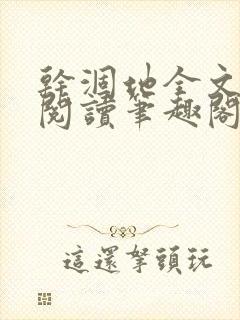 幹涸地全文
閱讀筆趣閣
這還拏頭玩